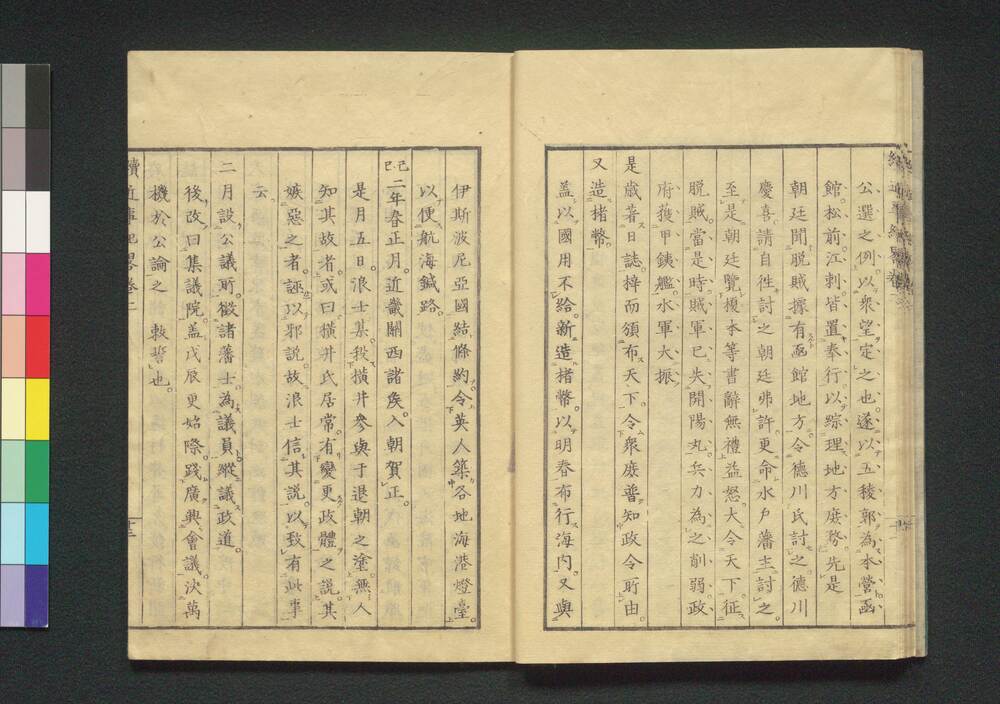 公選之例以衆望定之也遂以五稜郭為本營函
館松前江刺皆置奉行以綜理地方庶務先是
朝廷聞脱賊據有函館地方令德川氏討之德川
慶喜請自徃討之朝廷弗許更命水戶藩主討之
至是朝廷覽榎本等書辭無禮益怒大令天下征
脱賊當是時賊軍已失開陽丸兵力為之削弱政
府獲甲鉄艦水軍大振
是歳著日誌梓而頒布天下令衆庶普知政令所由
又造楮幣
盖以國用不給新造楮幣以明春布行海内又與
伊斯波尼亞國結條約令英人築各地海港燈臺
以便航海鍼路
己巳二年春正月近畿關西諸侯入朝賀正
是月五日浪士某殺横井參與于退朝之塗無人
知其故者或曰横井氏居常有變更政體之説其
嫉惡之者誣以邪説故浪士信其説以致有此事
云
二月設公議所徴諸藩士為議員縱議政道
後改曰集議院盖戊辰更始際踐廣興會議決萬
機於公論之 敕誓也
續近事紀畧卷二 十三